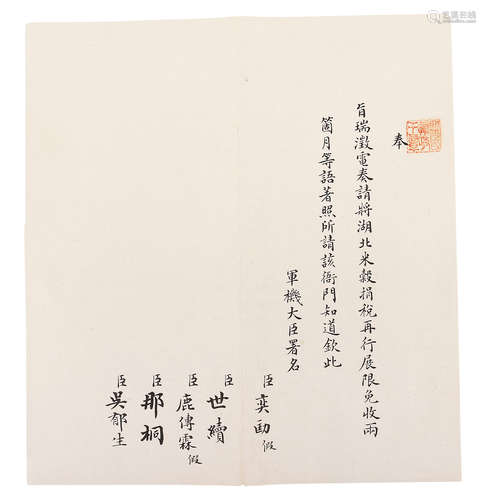 奉
旨瑞澂電奏請將湖北米穀捐稅再行展限免收兩
箇月等語著照所請該衙門知道欽此
軍機大臣署名
臣奕劻假
臣世續
臣鹿傳霖假
臣那桐
臣吳郁生